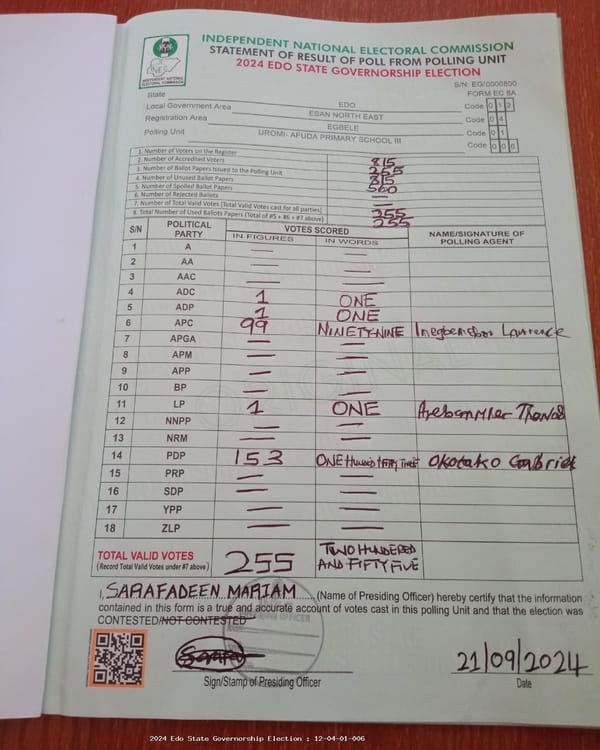 INDEPENDENT NATIONAL ELECTORAL COMMISSION
STATEMENT OF RESULT OF POLL FROM POLLING UNIT
2024 EDO STATE GOVERNORSHIP ELECTION
INEC
INDEPENDENT NATIONAL ELECTORAL COMMISSION
S/N: EG/0000800
FORM EC 8A
State EDO Code 0 1 2
Local Government Area ESAN NORTH EAST Code 0 4
Registration Area EGBELE Code 0 1
Polling Unit UROMI- AFUDA PRIMARY SCHOOL III Code 0 0 6
1. Number of Voters on the Register 815
2. Number of Accredited Voters 255
3. Number of Ballot Papers Issued to the Polling Unit 815
4. Number of Unused Ballot Papers 560
5. Number of Spoiled Ballot Papers —
6. Number of Rejected Ballots —
7. Number of Total Valid Votes (Total Valid Votes cast for all parties) 255
8. Total Number of Used Ballots Papers (Total of #5 + #6 + #7 above) 255
S/N POLITICAL PARTY VOTES SCORED NAME/SIGNATURE OF POLLING AGENT
IN FIGURES IN WORDS
1 A — —
2 AA — —
3 AAC — —
4 ADC 1 ONE
5 ADP 1 ONE
6 APC 99 NINETY-NINE Lawrence
7 APGA — —
8 APM — —
9 APP — —
10 BP — —
11 LP 1 ONE
12 NNPP — —
13 NRM — —
14 PDP 153 ONE HUNDRED FIFTY THREE OKOTAKO Gabriel
15 PRP — —
16 SDP — —
17 YPP — —
18 ZLP — —
TOTAL VALID VOTES 255 TWO HUNDERED AND FIFTY FIVE
(Record Total Valid Votes under #7 above)
I, SARAFADEEN MARIAM (Name of Presiding Officer) hereby certify that the information
contained in this form is a true and accurate account of votes cast in this polling Unit and that the election was
CONTESTED/NOT CONTESTED
21/09/2024
Sign/Stamp of Presiding Officer Date
2024 Edo State Governorship Election : 12-04-01-006